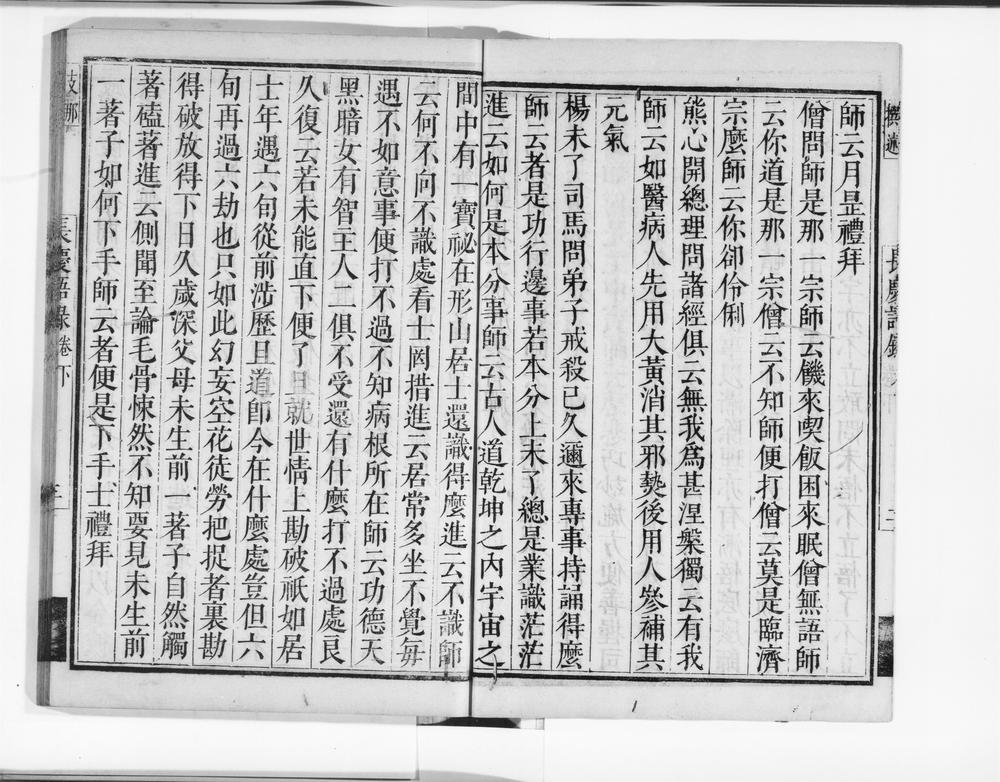 師云月昰禮拜
僧問師是那一宗師云饑來喫飯困來眠僧無語師
云你道是那一宗僧云不知師便打僧云莫是臨濟
宗麼師云你卻伶俐
熊心開總理問諸經俱云無我為甚涅槃獨云有我
師云如醫病人先用大黃消其邪熱後用人參補其
元氣
楊未了司馬問弟子戒殺已久邇來專事持誦得麼
師云者是功行邊事若本分上未了總是業識茫茫
進云如何是本分事師云古人道乾坤之內宇宙之
間中有一寶祕在形山居士還識得麼進云不識師
云何不向不識處看士罔措進云居常多坐不覺每
遇不如意事便打不過不知病根所在師云功德天
黑暗女有智主人二俱不受還有什麼打不過處良
久復云若未能直下便了日就世情上勘破祇如居
士年遇六旬從前涉歷且道即今在什麼處豈但六
旬再過六劫也只如此幻妄空花徒勞把捉者裏勘
得破放得下日久歲深父母未生前一著子自然觸
著磕著進云側聞至論毛骨悚然不知要見未生前
一著子如何下手師云者便是下手士禮拜
長慶語錄 卷下
三